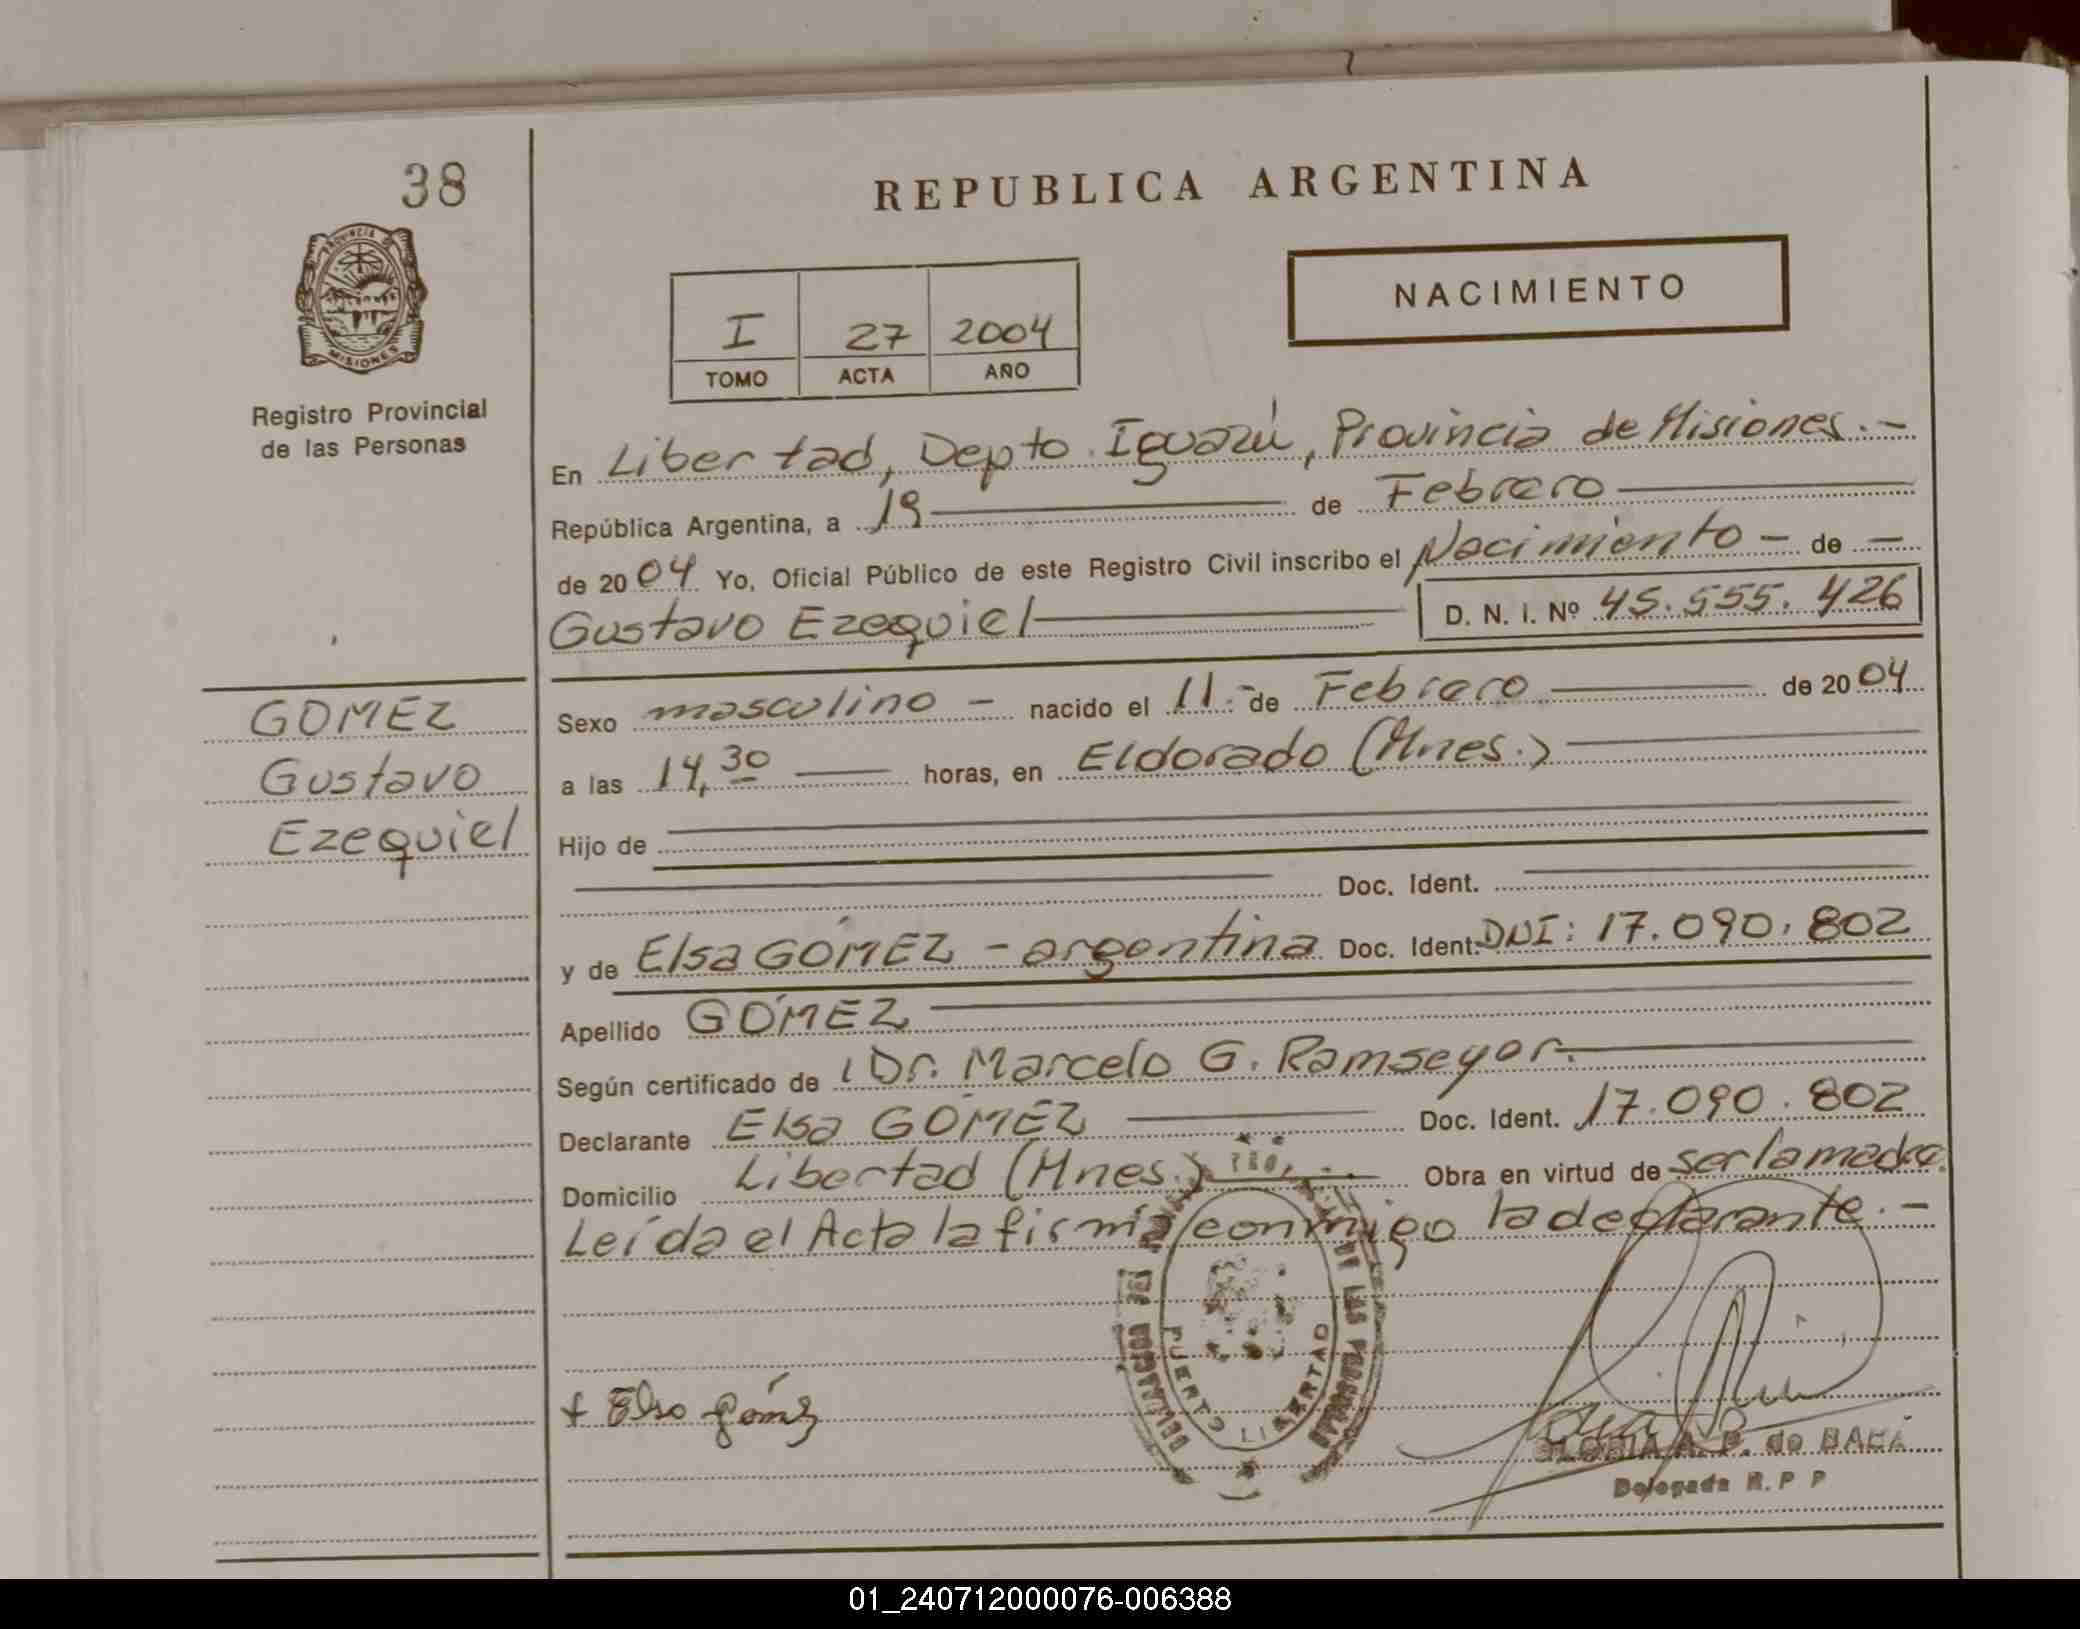 38
REPUBLICA ARGENTINA
PROVINCIA DE
MISIONES
NACIMIENTO
I 27 2004
TOMO ACTA AÑO
Registro Provincial
de las Personas
En Libertad, Depto Iguazú, Provincia de Misiones.-
República Argentina, a 19 de Febrero
de 2004 Yo, Oficial Público de este Registro Civil inscribo el Nacimiento - de -
Gustavo Ezequiel D. N. I. Nº 45.555.426
GOMEZ
Gustavo
Ezequiel
Sexo masculino - nacido el 11.- de Febrero de 2004
a las 14,30 horas, en Eldorado (Mnes.)
Hijo de
Doc. Ident.
y de Elsa GÓMEZ - argentina Doc. Ident. DNI: 17.090.802
Apellido GÓMEZ
Según certificado de Dr. Marcelo G. Ramseyer.
Declarante Elsa GÓMEZ Doc. Ident. 17.090.802
Domicilio Libertad (Mnes.) Obra en virtud de ser la madre.
Leída el Acta la firma conmigo la declarante.-
DE LAS PERSONAS
PUERTO LIBERTAD
+ Elsa gómez
GLORIA A. P. de
Delegada R. P P
01_240712000076-006388